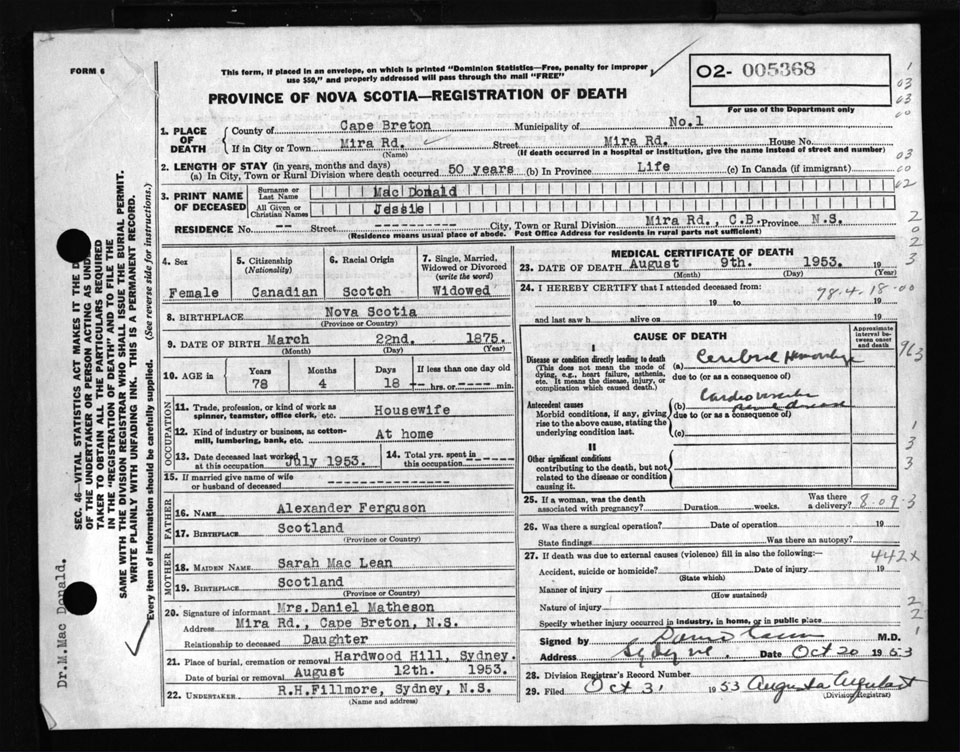 FORM 6
This form, if placed in an envelope, on which is printed "Dominion Statistics—Free, penalty for improper
use $50," and properly addressed will pass through the mail "FREE"
O2- 005368
For use of the Department only
PROVINCE OF NOVA SCOTIA—REGISTRATION OF DEATH
1. PLACE OF DEATH
County of Cape Breton Municipality of No.1
If in City or Town Mira Rd. Street Mira Rd. House No.
(Name) (If death occurred in a hospital or institution, give the name instead of street and number)
2. LENGTH OF STAY (in years, months and days)
(a) In City, Town or Rural Division where death occurred 50 years (b) In Province Life (c) In Canada (if immigrant)
3. PRINT NAME OF DECEASED
Surname or Last Name Mac Donald
All Given or Christian Names Jessie
RESIDENCE No. -- Street -------- City, Town or Rural Division Mira Rd., C.B. Province N.S.
(Residence means usual place of abode. Post Office Address for residents in rural parts not sufficient)
4. Sex
Female
5. Citizenship
(Nationality)
Canadian
6. Racial Origin
Scotch
7. Single, Married,
Widowed or Divorced
(write the word)
Widowed
8. BIRTHPLACE Nova Scotia
(Province or Country)
9. DATE OF BIRTH March 22nd. 1875.
(Month) (Day) (Year)
10. AGE in
Years Months Days If less than one day old
78 4 18 ------ hrs. or ------ min.
OCCUPATION
11. Trade, profession, or kind of work as
spinner, teamster, office clerk, etc. Housewife
12. Kind of industry or business, as cotton-
mill, lumbering, bank, etc. At home
13. Date deceased last worked
at this occupation July 1953.
14. Total yrs. spent in
this occupation ------
15. If married give name of wife
or husband of deceased ---------------
FATHER
16. NAME Alexander Ferguson
17. BIRTHPLACE Scotland
(Province or Country)
MOTHER
18. MAIDEN NAME Sarah Mac Lean
19. BIRTHPLACE Scotland
(Province or Country)
20. Signature of informant Mrs.Daniel Matheson
Address Mira Rd., Cape Breton, N.S.
Relationship to deceased Daughter
21. Place of burial, cremation or removal Hardwood Hill, Sydney.
Date of burial or removal August 12th. 1953.
22. UNDERTAKER R.H.Fillmore, Sydney, N.S.
(Name and address)
MEDICAL CERTIFICATE OF DEATH
23. DATE OF DEATH August 9th. 1953. 19
(Month) (Day) (Year)
24. I HEREBY CERTIFY that I attended deceased from:
78.4.18-00
19 to 19
and last saw h alive on 19
CAUSE OF DEATH
Approximate
interval be-
tween onset
and death
I
Disease or condition directly leading to death
(This does not mean the mode of
dying, e.g., heart failure, asthenia,
etc. It means the disease, injury, or
complication which caused death.)
(a) Cerebral Hemorrhage
due to (or as a consequence of)
Antecedent causes
Morbid conditions, if any, giving
rise to the above cause, stating the
underlying condition last.
(b) Cardiovascular
renal disease
due to (or as a consequence of)
(c)
II
Other significant conditions
contributing to the death, but not
related to the disease or condition
causing it.
25. If a woman, was the death
associated with pregnancy? Duration weeks. Was there
a delivery?
8-09-3
26. Was there a surgical operation? Date of operation 19
State findings Was there an autopsy?
27. If death was due to external causes (violence) fill in also the following:—
442X
Accident, suicide or homicide? Date of injury 19
(State which)
Manner of injury
(How sustained)
Nature of injury
Specify whether injury occurred in industry, in home, or in public place
Signed by M.D.
Address Sydney Date Oct 20 1953
28. Division Registrar's Record Number
29. Filed Oct 31 1953 Augusta
(Division Registrar)
SEC. 46—VITAL STATISTICS ACT MAKES IT THE D
OF THE UNDERTAKER OR PERSON ACTING AS UND
TAKER TO OBTAIN ALL THE PARTICULARS REQUIRED
IN THE "REGISTRATION OF DEATH" AND TO FILE THE
SAME WITH THE DIVISION REGISTRAR WHO SHALL ISSUE THE BURIAL PERMIT.
WRITE PLAINLY WITH UNFADING INK. THIS IS A PERMANENT RECORD.
Every item of information should be carefully supplied. (See reverse side for instructions.)
Dr.M.Mac Donald.
1
03
03
00
03
00
02
2
0
2
3
963
1
3
3
2
2
1